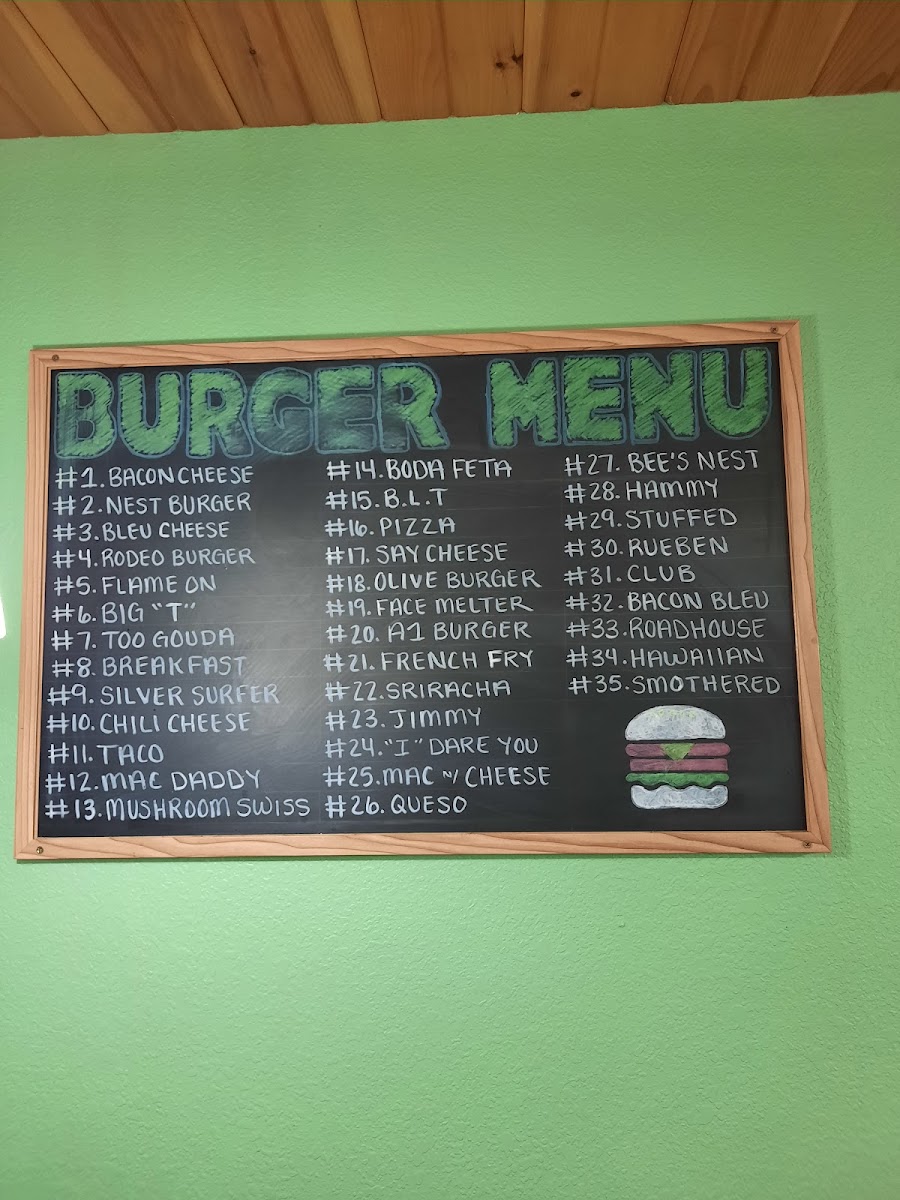 BURGER MENU
#1. BACON CHEESE
#2. NEST BURGER
#3. BLEU CHEESE
#4. RODEO BURGER
#5. FLAME ON
#6. BIG "T"
#7. TOO GOUDA
#8. BREAKFAST
#9. SILVER SURFER
#10. CHILI CHEESE
#11. TACO
#12. MAC DADDY
#13. MUSHROOM SWISS
#14. BODA FETA
#15. B.L.T
#16. PIZZA
#17. SAY CHEESE
#18. OLIVE BURGER
#19. FACE MELTER
#20. A1 BURGER
#21. FRENCH FRY
#22. SRIRACHA
#23. JIMMY
#24. "I" DARE YOU
#25. MAC N/ CHEESE
#26. QUESO
#27. BEE'S NEST
#28. HAMMY
#29. STUFFED
#30. RUEBEN
#31. CLUB
#32. BACON BLEU
#33. ROADHOUSE
#34. HAWAIIAN
#35. SMOTHERED